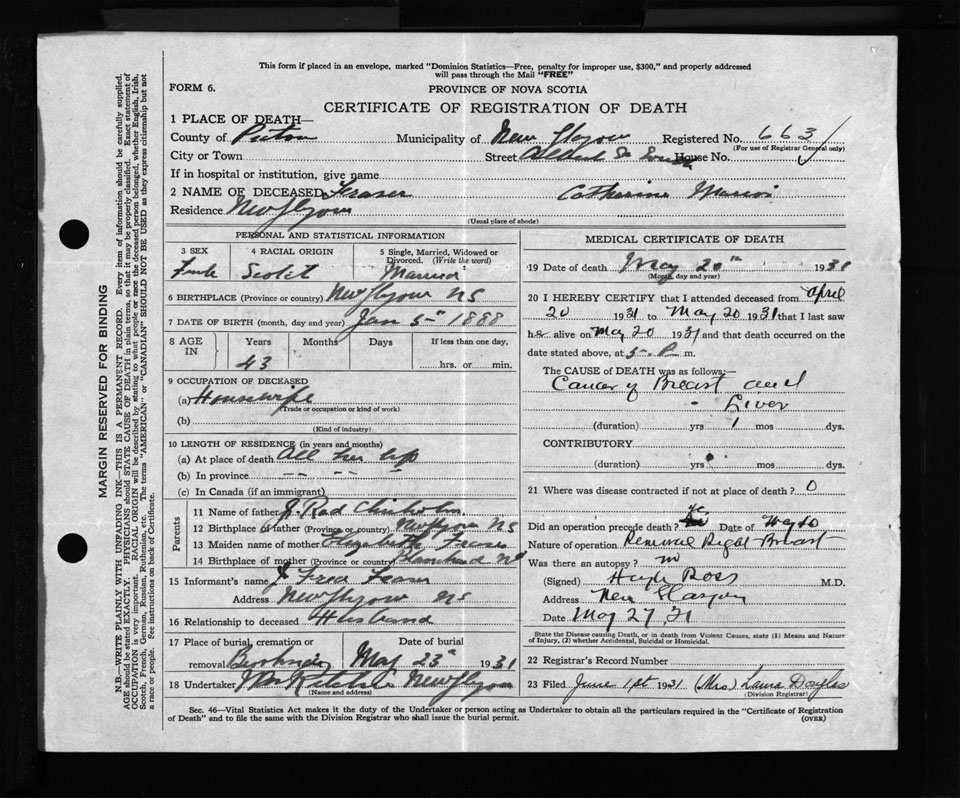 This form if placed in an envelope, marked "Dominion Statistics—Free, penalty for improper use, $300," and properly addressed
will pass through the Mail "FREE"
FORM 6.
PROVINCE OF NOVA SCOTIA
CERTIFICATE OF REGISTRATION OF DEATH
1 PLACE OF DEATH—
County of Pictou Municipality of New Glasgow Registered No. 663
(For use of Registrar General only)
City or Town Street Albert St House No.
If in hospital or institution, give name
2 NAME OF DECEASED Fraser Catherine
Residence New Glasgow
(Usual place of abode)
PERSONAL AND STATISTICAL INFORMATION
3 SEX 4 RACIAL ORIGIN 5 Single, Married, Widowed or Divorced. (Write the word)
Female Scotch Married
6 BIRTHPLACE (Province or country) New Glasgow NS
7 DATE OF BIRTH (month, day and year) Jan 5th 1888
8 AGE IN Years Months Days If less than one day,
43 hrs. or min.
9 OCCUPATION OF DECEASED
(a) Housewife
(Trade or occupation or kind of work)
(b)
(Kind of industry)
10 LENGTH OF RESIDENCE (in years and months)
(a) At place of death All her life
(b) In province — — — —
(c) In Canada (if an immigrant)
Parents
11 Name of father J. Rod Chisholm
12 Birthplace of father (Province or country) New Glasgow NS
13 Maiden name of mother Elizabeth Fraser
14 Birthplace of mother (Province or country)
15 Informant's name J Fred Fraser
Address New Glasgow NS
16 Relationship to deceased Husband
17 Place of burial, cremation or Date of burial
removal May 23rd 1931
18 Undertaker New Glasgow
(Name and address)
MEDICAL CERTIFICATE OF DEATH
19 Date of death May 20th 1931
(Month, day and year)
20 I HEREBY CERTIFY that I attended deceased from April
20 1931 to May 20 1931 that I last saw
her alive on May 20 1931 and that death occurred on the
date stated above, at 5 P m.
The CAUSE OF DEATH was as follows:—
Cancer of Breast and
" Liver
(duration) yrs 1 mos dys.
CONTRIBUTORY
(duration) yrs. mos. dys.
21 Where was disease contracted if not at place of death? 0
Did an operation precede death? yes Date of
Nature of operation Removal Right Breast
Was there an autopsy? no
(Signed) Hugh Ross M.D.
Address New Glasgow
Date May 27, 31
State the Disease causing Death, or in death from Violent Causes, state (1) Means and Nature
of Injury, (2) whether Accidental, Suicidal or Homicidal.
22 Registrar's Record Number
23 Filed June 1st 1931 (Mrs) Laura Douglas
(Division Registrar)
Sec. 46—Vital Statistics Act makes it the duty of the Undertaker or person acting as Undertaker to obtain all the particulars required in the "Certificate of Registration
of Death" and to file the same with the Division Registrar who shall issue the burial permit. (OVER)
MARGIN RESERVED FOR BINDING
N.B.—WRITE PLAINLY WITH UNFADING INK—THIS IS A PERMANENT RECORD. Every item of information should be carefully supplied.
AGE should be stated EXACTLY. PHYSICIANS should STATE CAUSE OF DEATH in plain terms, so that it may be properly classified. Exact statement of
OCCUPATION is very important. RACIAL ORIGIN will be described by stating to what people or race the deceased person belonged, whether English, Irish,
Scotch, French, German, Russian, Ruthenian, etc. The terms "AMERICAN" or "CANADIAN" SHOULD NOT BE USED as they express citizenship but not
a race or people. See instructions on back of Certificate.